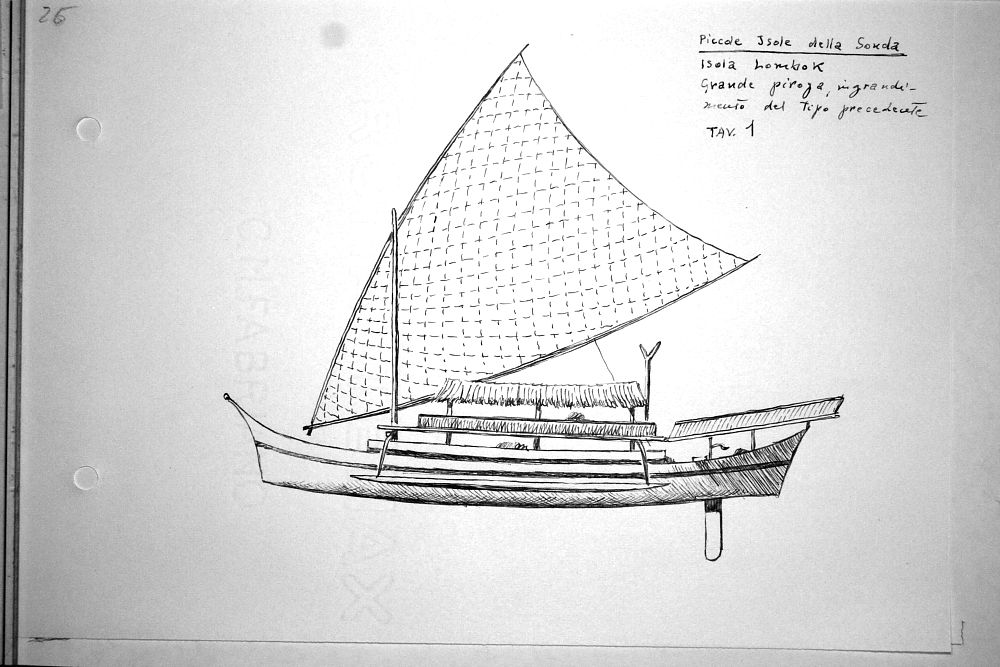 26
Piccole Isole della Sonda
Isola Lombok
Grande piroga, ingrandi-
mento del Tipo precedente
TAV. 1